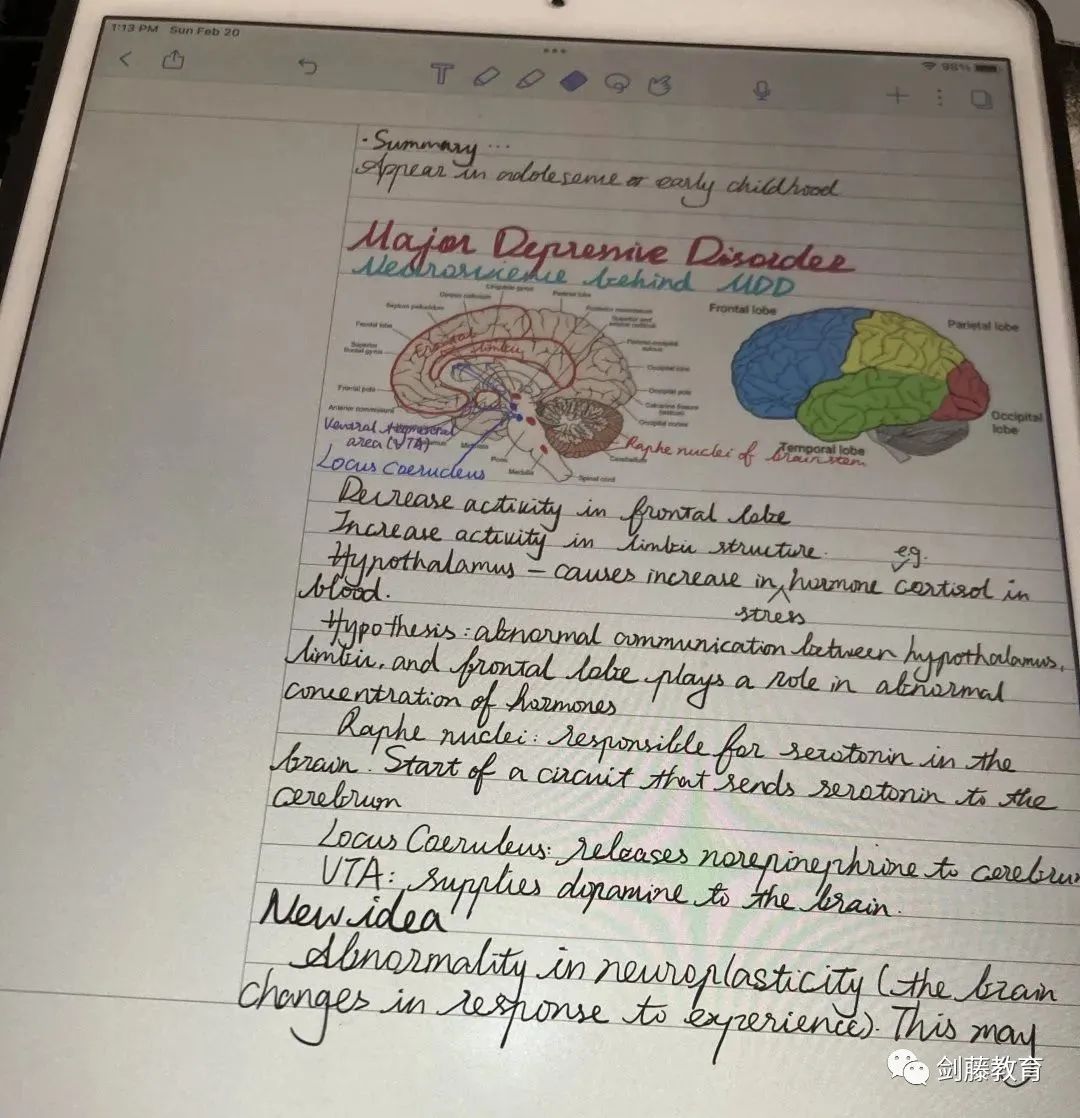 1:13 PM Sun Feb 20
98%
T
· Summary ...
Appear in adolescence or early childhood
Major Depressive Disorder
Neuroscience behind MDD
Cingulate gyrus
Parietal lobe
Corpus callosum
Septum pellucidum
Frontal lobe
Superior
frontal gyrus
Frontal
limbic
Frontal pole
Anterior commissure
Parieto-occipital
sulcus
Occipital lobe
Occipital pole
Calcarine fissure
Occipital cortex
Cerebellum
Pons
Medulla
Spinal cord
Frontal lobe
Parietal lobe
Occipital
lobe
Temporal lobe
Ventral tegmental
area (VTA)
Locus Coeruleus
Raphe nuclei of
brainstem
Decrease activity in frontal lobe
Increase activity in limbic structure.
eg.
Hypothalamus – causes increase in hormone cortisol in
stress
blood.
Hypothesis: abnormal communication between hypothalamus,
limbic, and frontal lobe plays a role in abnormal
concentration of hormones
Raphe nuclei: responsible for serotonin in the
brain. Start of a circuit that sends serotonin to the
cerebrum
Locus Coeruleus: releases norepinephrine to cerebrum
VTA: supplies dopamine to the brain.
New idea
Abnormality in neuroplasticity (the brain
changes in response to experience). This may
剑藤教育